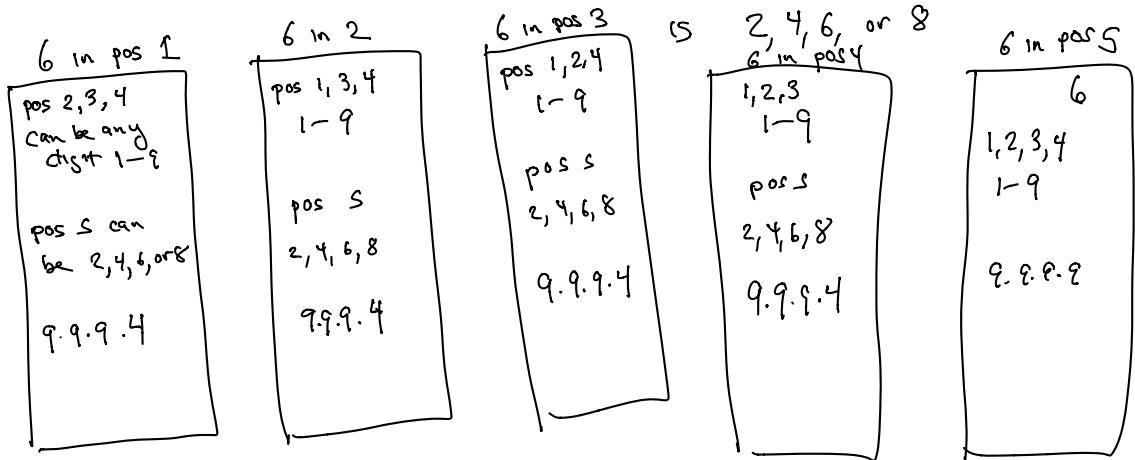 6 in pos 1
pos 2,3,4
can be any
digit 1-9
pos 5 can
be 2,4,6, or 8
9.9.9.4
6 in 2
pos 1,3,4
1-9
pos 5
2,4,6,8
9.9.9.4
6 in pos 3
pos 1,2,4
1-9
pos 5
2,4,6,8
9.9.9.4
is 2,4,6, or 8
6 in pos 4
1,2,3
1-9
pos 5
2,4,6,8
9.9.9.4
6 in pos 5
6
1,2,3,4
1-9
9.9.9.9